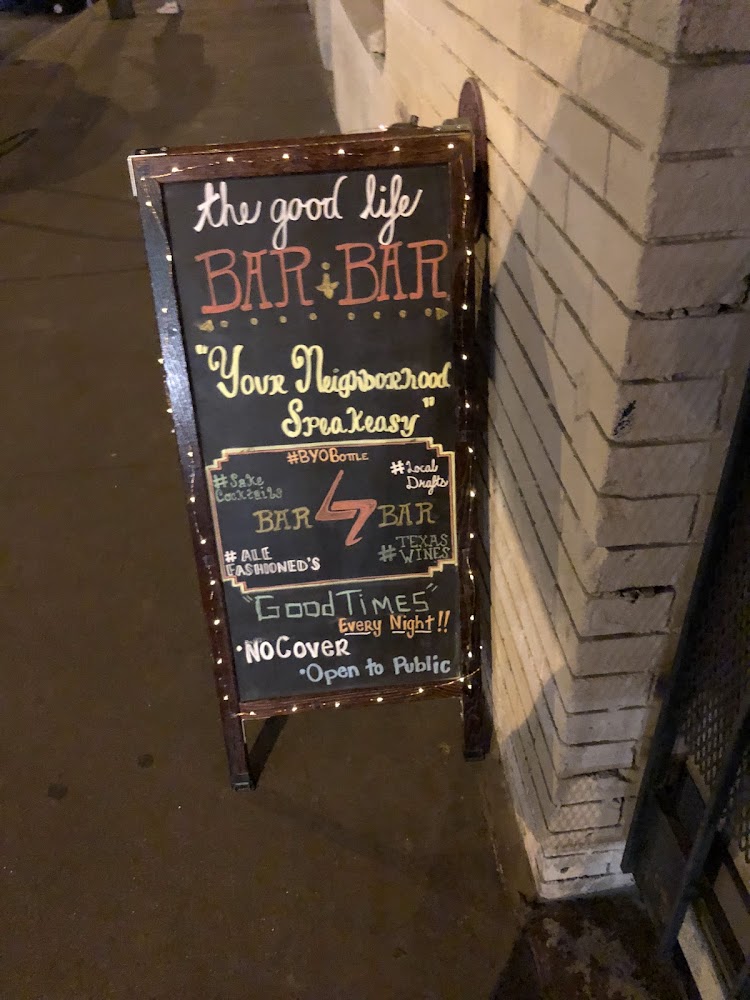 the good life
BAR & BAR
"Your Neighborhood
Speakeasy"
#BYOBottle
#Sake
Cocktails
#Local
Drafts
BAR BAR
#ALE
FASHIONED'S
#TEXAS
WINES
"GoodTimes"
Every Night!!
•NoCover
•Open to Public